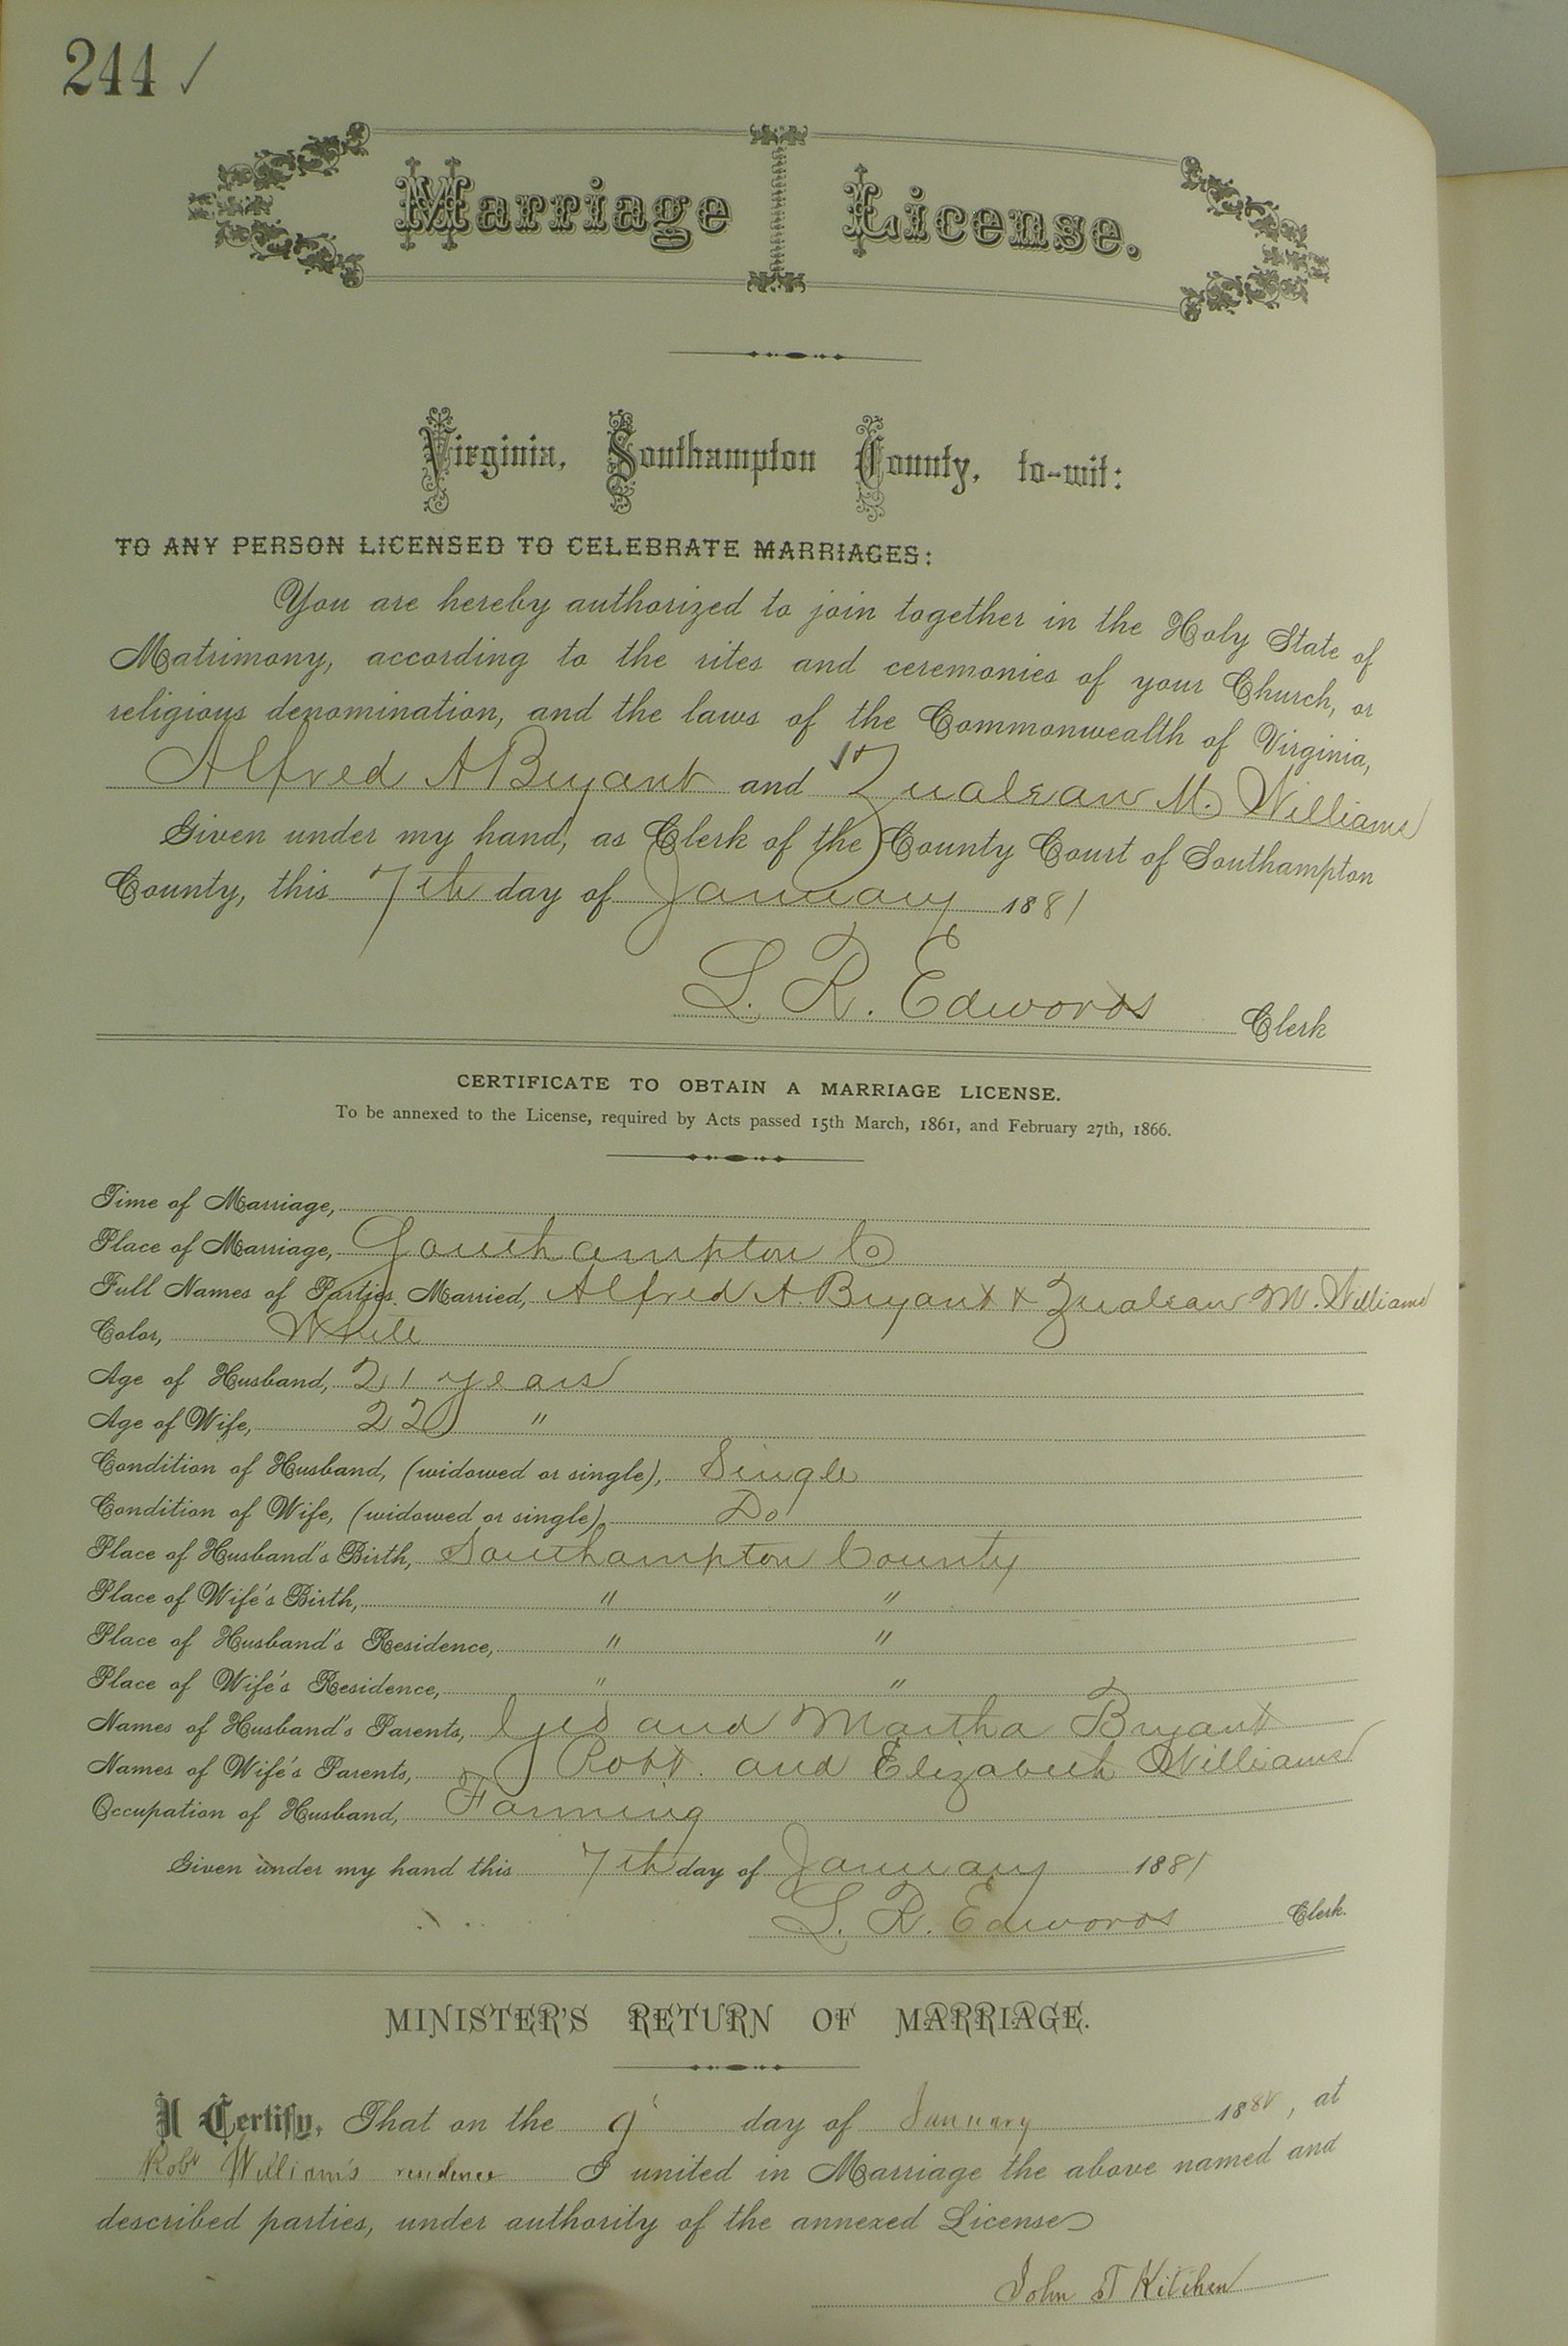 244 ✓
Marriage License.
Virginia, Southampton County, to-wit:
TO ANY PERSON LICENSED TO CELEBRATE MARRIAGES:
You are hereby authorized to join together in the Holy State of
Matrimony, according to the rites and ceremonies of your Church, or
religious denomination, and the laws of the Commonwealth of Virginia,
Alfred A Bryant and M. Williams
Given under my hand, as Clerk of the County Court of Southampton
County, this 7th day of January 1881
L. R. Edwards Clerk
CERTIFICATE TO OBTAIN A MARRIAGE LICENSE.
To be annexed to the License, required by Acts passed 15th March, 1861, and February 27th, 1866.
Time of Marriage,
Place of Marriage, Southampton Co
Full Names of Parties Married, Alfred A. Bryant + M. Williams
Color, White
Age of Husband, 21 years
Age of Wife, 22 "
Condition of Husband, (widowed or single), Single
Condition of Wife, (widowed or single), Do
Place of Husband's Birth, Southampton County
Place of Wife's Birth, " "
Place of Husband's Residence, " "
Place of Wife's Residence, " "
Names of Husband's Parents, and Martha Bryant
Names of Wife's Parents, Robt. and Elizabeth Williams
Occupation of Husband, Farming
Given under my hand this 7th day of January 1881
L. R. Edwards Clerk.
MINISTER'S RETURN OF MARRIAGE.
I Certify, That on the 9 day of January 188 , at
Robt William's residence I united in Marriage the above named and
described parties, under authority of the annexed License
John T Kitchen